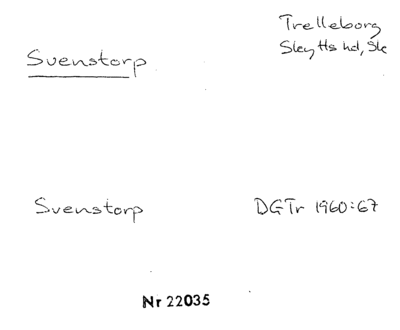 Trelleborg
Svenstorp
Skytts hd, Sk
Svenstorp DGTr 1960:67
Nr 22035